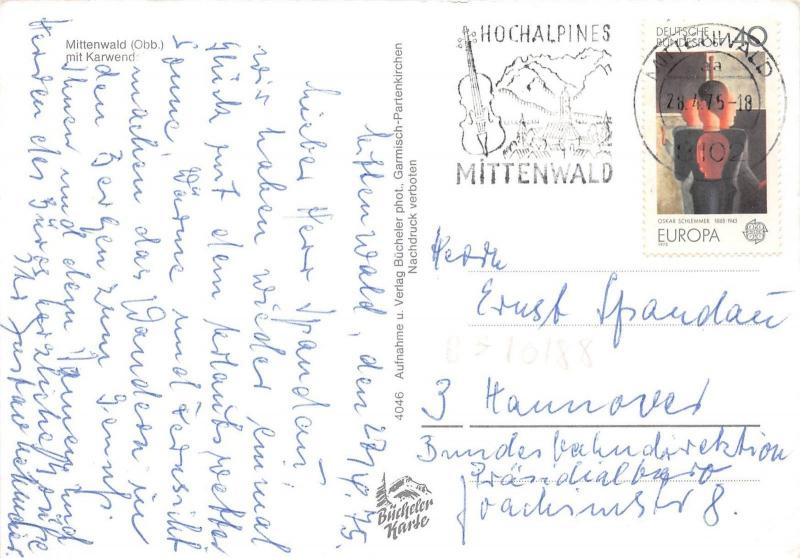 Mittenwald (Obb.)
mit Karwendel
Mittenwald, den 27.4.75.
Lieber Herr Spandau!
wir haben wieder einmal
Glück mit dem Urlaubswetter
Sonne, Wärme und Fernsicht
machen das Wandern in
den Bergen zum Genuß.
Ihnen und den Damen und
Herren des Büros herzliche Grüße
Ihr
4046 Aufnahme u. Verlag Bücheler phot., Garmisch-Partenkirchen
Nachdruck verboten
Bücheler
Karte
HOCHALPINES
MITTENWALD
DEUTSCHE
BUNDESPOST 40
MITTENWALD
aa
28.4.75-18
8102
OSKAR SCHLEMMER 1888-1943
EUROPA
1975
Herrn
Ernst Spandau
3 Hannover
Bundesbahndirektion
Präsidialbüro
Joachimstr 8.